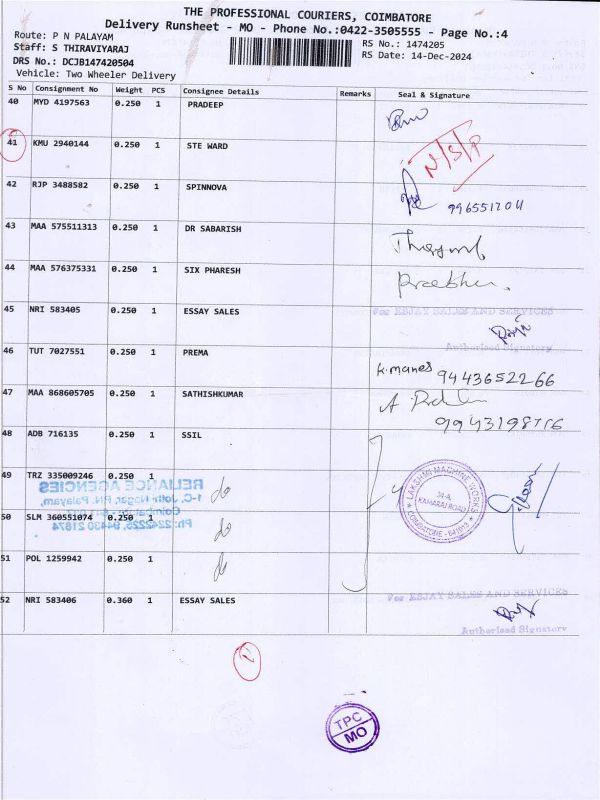 THE PROFESSIONAL COURIERS, COIMBATORE
Delivery Runsheet - MO - Phone No.:0422-3505555 - Page No.:4
Route: P N PALAYAM
Staff: S THIRAVIYARAJ
RS No.: 1474205
DRS No.: DCJB147420504
RS Date: 14-Dec-2024
Vehicle: Two Wheeler Delivery
S No Consignment No Weight PCS Consignee Details Remarks Seal & Signature
40 MYD 4197563 0.250 1 PRADEEP
41 KMU 2940144 0.250 1 STE WARD N/S/P
42 RJP 3488582 0.250 1 SPINNOVA
43 MAA 575511313 0.250 1 DR SABARISH
44 MAA 576375331 0.250 1 SIX PHARESH
45 NRI 583405 0.250 1 ESSAY SALES For ESJAY SALES AND SERVICES
Authorised Signatory
46 TUT 7027551 0.250 1 PREMA 9443652266
47 MAA 868605705 0.250 1 SATHISHKUMAR
48 ADB 716135 0.250 1 SSIL
49 TRZ 335009246 0.250 1 do
RELIANCE AGENCIES
LAKSHMI MACHINE WORKS
34-A, KAMARAJ ROAD
50 SLM 360551074 0.250 1 do
51 POL 1259942 0.250 1 do
52 NRI 583406 0.360 1 ESSAY SALES For ESJAY SALES AND SERVICES
Authorised Signatory
TPC
MO